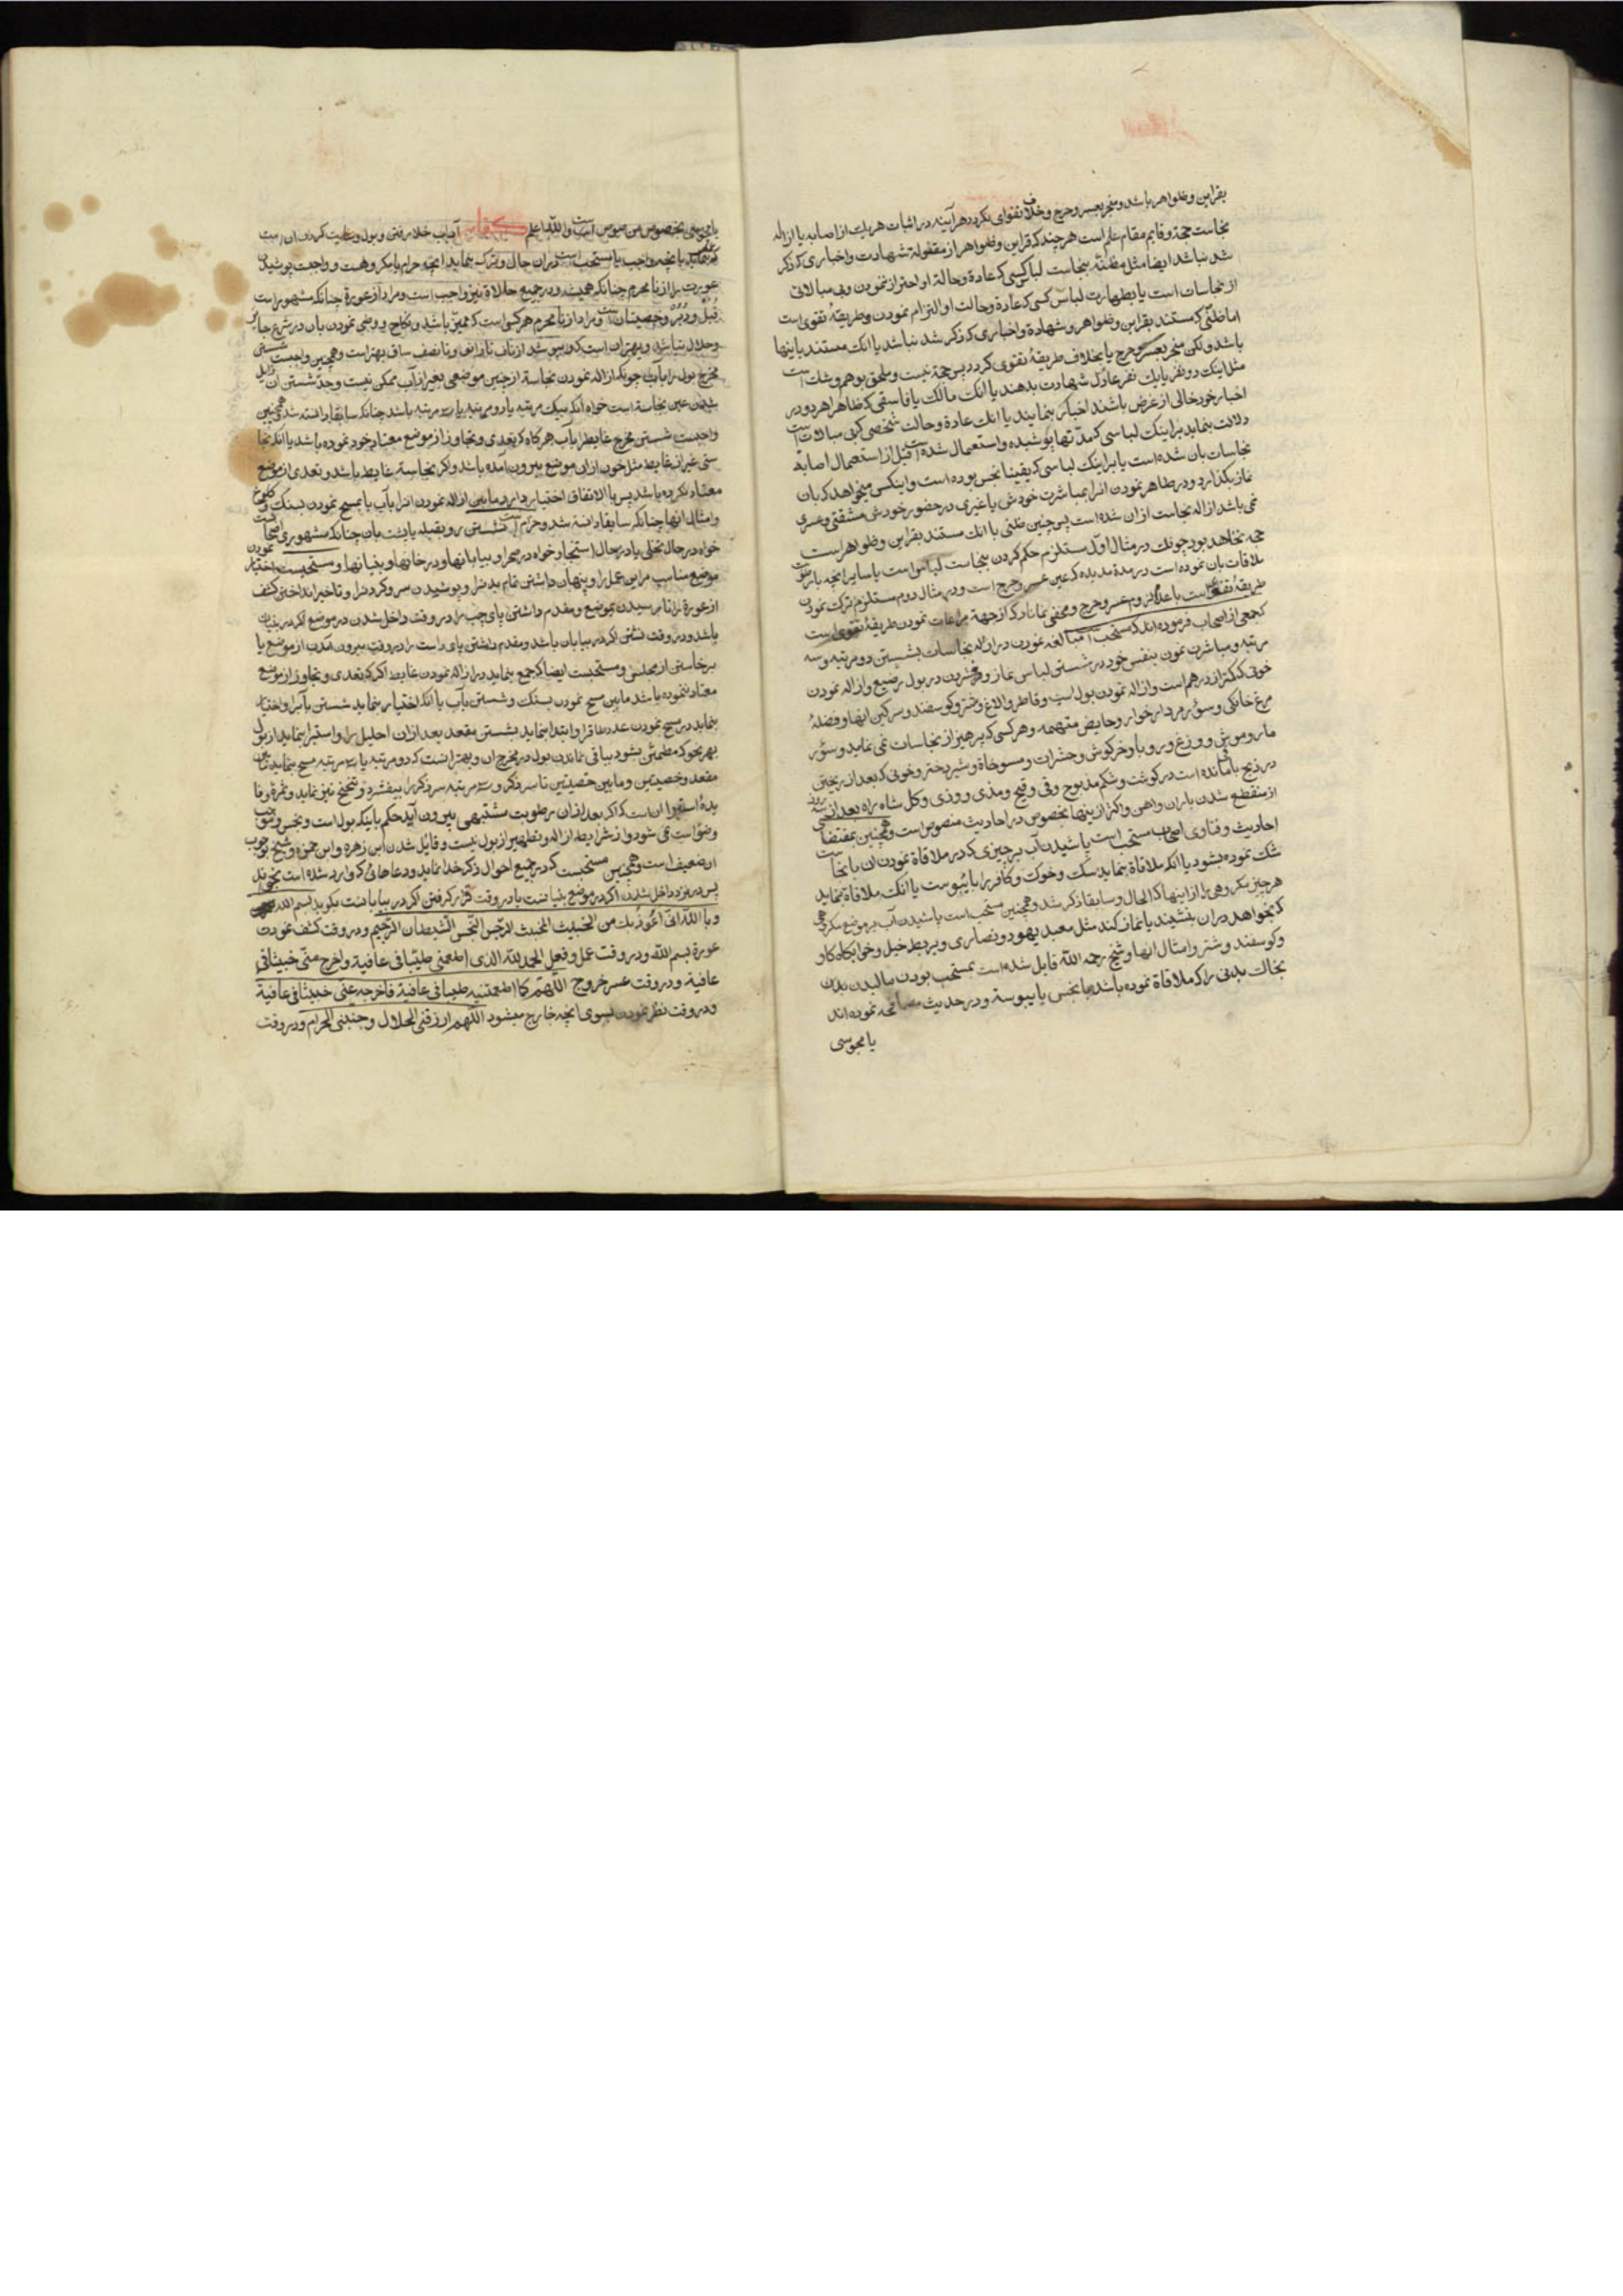 بقراین و ظواهر باشد و منجر بعسر و حرج و خلاف تقوای نکردد هر آینه در اثبات هر یك از اصابه یا ازاله
نجاست حجة و قایم مقام علم است هر چند که قراین و ظواهر از مقوله شهادت و اخباری که ذکر
شد نباشد ایضا مثل مظنّه بنجاست لباس کسی که عادة و حالة او احتراز نمودن و بی مبالاتی
از نجاسات است یا بطهارت لباس کسی که عادة و حالت او التزام نمودن و طریقهٔ تقوی است
اما ظنّی که مستند بقراین و ظواهر و شهادة و اخباری که ذکر شد نباشد یا انك مستند باینها
باشد ولکن منجر بعسر و حرج یا بخلاف طریقهٔ تقوی کردد پس حجة نیست و ملحق بوهم و شك است
مثل اینك دو نفر یا یك نفر عادل شهادت بدهند یا انك مالك یا فاسقی که ظاهرا هر دو در
اخبار خود خالی از غرض باشند اخبار بنمایند یا انك عادة و حالت شخصی که بی مبالات است
دلالت بنماید بر اینك لباسی که مدّتها پوشیده و استعمال شده است قبل از استعمال اصابهٔ
نجاسات بان شده است یا بر اینك لباسی که یقینا نجس بوده است و اینکس میخواهد که بان
نماز بکذارد و در طاهر نمودن انرا بمباشرت خودش یا غیری در حضور خودش مشقتی و عسری
نمی باشد ازاله نجاست از ان شده است پس چنین ظنّی با انك مستند بقراین و ظواهر است
حجه نخاهد بود چونك در مثال اوّل مستلزم حکم کردن بنجاست لباس است یا سایر انچه بارطوبت
ملاقات بان نموده است در مدة مدیده که عین عسر و حرج است و در مثال دوم مستلزم ترك نمودن
طریقهٔ تقوی است با عدم لزوم عسر و حرج و مخفی نماناد که از جهة مراعات نمودن طریقهٔ تقوی است
که جمعی از اصحاب فرموده اند که مستحب است مبالغه نمودن در ازاله نجاسات بشستن دو مرتبه و سه
مرتبه و مباشرت نمودن بنفس خود در شستن لباس نماز و فشردن در بول رضیع و ازاله نمودن
خونی که کمتر از درهم است و ازاله نمودن بول اسب و قاطر و الاغ و شتر و کوسفند و سرکین انها و فضلهٔ
مرغ خانکی و سؤر مردار خوار و حایض متهمه و هر کسی که پرهیز از نجاسات نمی نماید و سؤر
مار و موش و وزغ و روباه و خرکوش و حشرات و مسوخاة و شیر دختر و خونی که بعد از ریختن
در ذبح باقی مانده است در کوشت و شکم مذبوح و قی و قیح و مذی و وذی و کل شاه راه بعد از سه روز
از منقطع شدن باران و اهن و اکثر از ینها بخصوص در احادیث منصوص است و همچنین بمقتضای
احادیث و فتاوی اصحاب مستحب است پاشیدن آب بر چیزی که در ملاقاة نمودن ان با نجاست
شك نموده بشود یا انکه ملاقاة بنماید سك و خوك و کافر را با یبوست یا انك ملاقاة بنماید
هر چیز مکروهی را از اینها که الحال و سابقا ذکر شد و همچنین مستحب است پاشیدن آب بر موضع مکروهی
که بخواهد در ان بنشیند یا نماز کند مثل معبد یهود و نصاری و یربط خیل و خوابکاه کاو
و کوسفند و شتر و امثال انها و شیخ رحمه اللّه قایل شده است بمستحب بودن مالیدن بدن
بخاك بدنی را که ملاقاة نموده باشد با نجس با یبوسة و در حدیث مصافحه نموده اند
یا مجوسی
یا مجوسی بخصوص منصوص است و اللّه اعلم آداب خلا رفتن و بول و غایت کردن ان است
که عمل باید بانچه واجب یا مستحب است در ان حال و ترك بنماید انچه حرام یا مکروهست و واجبست پوشیدن
عورت را از نامحرم چنانکه همیشه و در جمیع حالاة نیز واجب است و مراد از عورة چنانکه مشهور است
قبل و دبر و خصیتان است و مراد از نامحرم هر کسی است که ممیّز باشد و نکاح و وطی نمودن بان در شرع جائز
و حلال نباشد و بهتر ان است که بپوشد از ناف تا زانو و تا نصف ساق بهتر است و همچنین واجبست شستن
مخرج بول را بآب چونکه ازاله نمودن نجاسة از چنین موضعی بغیر از آب ممکن نیست و حدّ شستن ان زایل
شدن عین نجاسة است خواه انکه بیك مرتبه یا دو مرتبه یا سه مرتبه باشد چنانکه سابقا دانسته شد و همچنین
واجبست شستن مخرج غایط را بآب هر کاه که تعدی و تجاوز از موضع معتاد خود نموده باشد یا انکه نجا
ستی غیر از غایط مثل خون از ان موضع بیرون آمده باشد و اکر نجاسة غایط باشد و تعدی از موضع
معتاد نکرده باشد پس بالاتفاق اختیار دارد مابین ازاله نمودن انرا بآب یا بمسح نمودن بسنك و کلوخ
و امثال انها چنانکه سابقا دانسته شد و حرام است نشستن رو بقبله یا پشت بان چنانکه مشهور است
خواه در حال تخلی یا در حال استنجا و خواه در صحرا و بیابانها و در خانها و بنیانها و مستحبست اختیار نمودن
موضع مناسب مر این عمل را و پنهان داشتن تمام بدنرا و پوشیدن سر و کردنرا و تاخیر انداختن کشف
از عورة را تا رسیدن بموضع و مقدم داشتن پای چپ را در وقت داخل شدن در موضع اکر در بنیان
باشد و در وقت نشتن اکر در بیابان باشد و مقدم داشتن پای راست را در وقت بیرون آمدن از موضع یا
برخاستن از مجلس و مستحبست ایضا که جمع بنماید در ازاله نمودن غایط اکر که تعدی و تجاوز از موضع
معتاد ننموده باشد مابین مسح نمودن بسنك و شستن بآب یا انکه اختیار بنماید شستن بآبرا و اختیار
بنماید در مسح نمودن عدد طاق را و ابتدا بنماید بشستن مقعد بعد از ان احلیل را و استبرا بنماید از بول
بهر نحو که مطمئن بشود بباقی نماندن بول در مخرج ان و بهتر انست که دو مرتبه یا سه مرتبه مسح بنماید مابین
مقعد و خصیتین و مابین خصیتین تا سر ذکر و سه مرتبه سر ذکر را بیفشرد و تنحنح نیز نماید و ثمرة و فا
یدهٔ استبرا ان است که اکر بعد از ان رطوبت مشتبهی بیرون آید حکم باینکه بول است و نجس و موجب
وضو است نمی شود و از شرایط ازاله و تطهیر از بول نیست و قائل شدن ابن زهره و ابن حمزه و شیخ بوجوب
ان ضعیف است و همچنین مستحبست که در جمیع احوال ذکر خدا نماید و دعاهائی که وارد شده است بخواند
پس در نزد داخل شدن اکر در موضع بنیانست یا در وقت قرار کرفتن اکر در بیابانست بکوید بسم اللّه
و باللّه انّی اعوذ بك من الخبیث المخبث الرّجس النّجس الشیطان الرّجیم و در وقت کشف عورت
عورة بسم اللّه و در وقت عمل و فعل الحمد للّه الذی اطعمنی طیّبا فی عافیة و اخرج منّی خبیثا فی
عافیة و در وقت عسر خروج اللّهمّ کما اطعمتنیه طیبا فی عافیة فاخرجه عنّی خبیثا فی عافیة
و در وقت نظر نمودن بسوی انچه خارج میشود اللّهم ارزقنی الحلال و جنبنی الحرام و در وقت